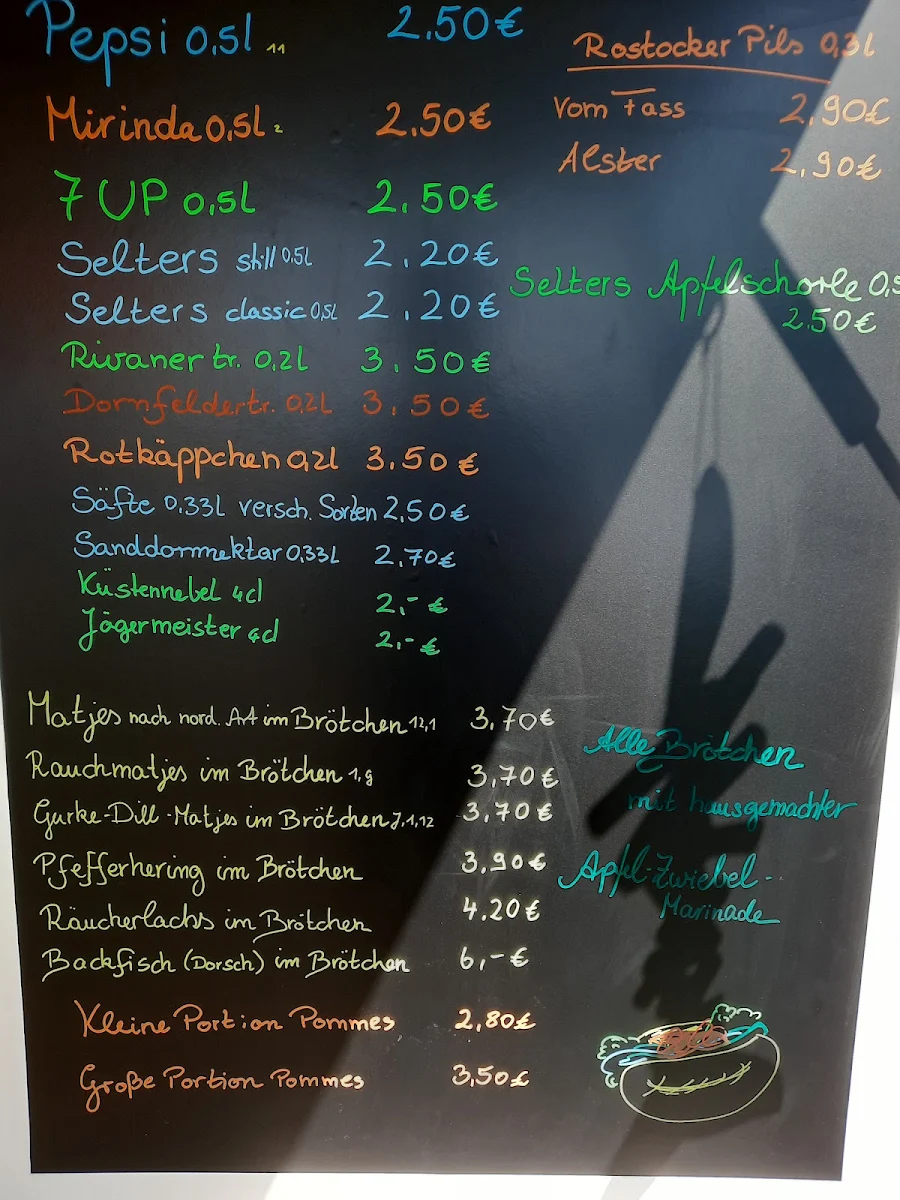 Pepsi 0,5l 11 2.50€
Mirinda 0,5l 2 2.50€
7 UP 0,5l 2.50€
Selters still 0.5l 2.20€
Selters classic 0,5l 2.20€
Rivaner tr. 0,2l 3.50€
Dornfelder tr. 0,2l 3.50€
Rotkäppchen 0,2l 3.50€
Säfte 0,33L versch. Sorten 2,50€
Sanddornnektar 0,33L 2,70€
Küstennebel 4cl 2,-€
Jägermeister 4cl 2,-€
Rostocker Pils 0,3l
Vom Fass 2,90€
Alster 2,90€
Selters Apfelschorle 0,5
2.50€
Matjes nach nord. Art im Brötchen 12,1 3,70€
Rauchmatjes im Brötchen 1,9 3,70€
Gurke-Dill-Matjes im Brötchen 7,1,12 3,70€
Pfefferhering im Brötchen 3,90€
Räucherlachs im Brötchen 4.20€
Backfisch (Dorsch) im Brötchen 6,-€
Kleine Portion Pommes 2,80€
Große Portion Pommes 3,50€
Alle Brötchen
mit hausgemachter
Apfel-Zwiebel-
Marinade